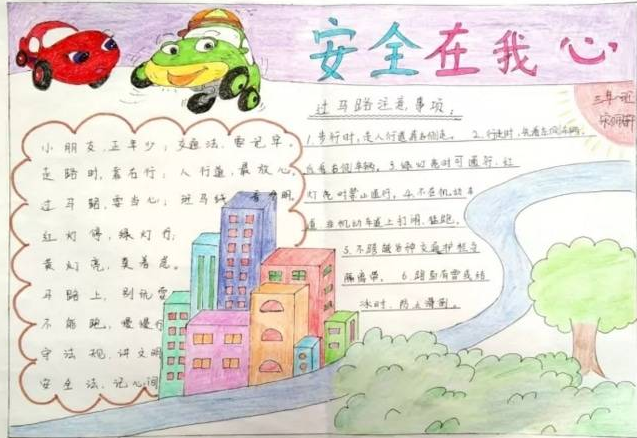 安全在我心
三年一班
过马路注意事项：
小朋友，正年少，交通法，要记牢。
走路时，靠右行，人行道，最放心。
过马路，要当心，斑马线，看分明。
红灯停，绿灯行，
黄灯亮，莫着急。
马路上，别玩耍
不能跑，慢慢行
守法规，讲文明
安全法，记心间
1.步行时，走人行道靠右侧走。 2.行走时，先看左侧车辆，
后看右侧车辆。3.绿灯亮时可通行，红
灯亮时禁止通行。4.不在机动车
道 非机动车道上打闹、猛跑。
5.不跨越各种交通护栏与
隔离带。 6.路面有雪或结
冰时，防止滑倒。